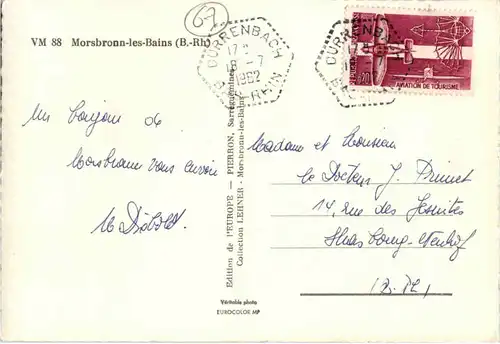 67
VM 88 Morsbronn-les-Bains (B.-Rh)
DURRENBACH
17
18 -7
1962
BAS RHIN
DURRENBACH
AVIATION DE TOURISME
Un bonjour de
Morsbronn vous envoie
M Diebolt
Edition de l'EUROPE — PIERRON, Sarreguemines
Collection LEHNER - Morsbronn-les-Bains
Madame et Monsieur
le Docteur J.
14, rue des Jésuites
Strasbourg-Neuhof
(B. Rh)
Véritable photo
EUROCOLOR MP